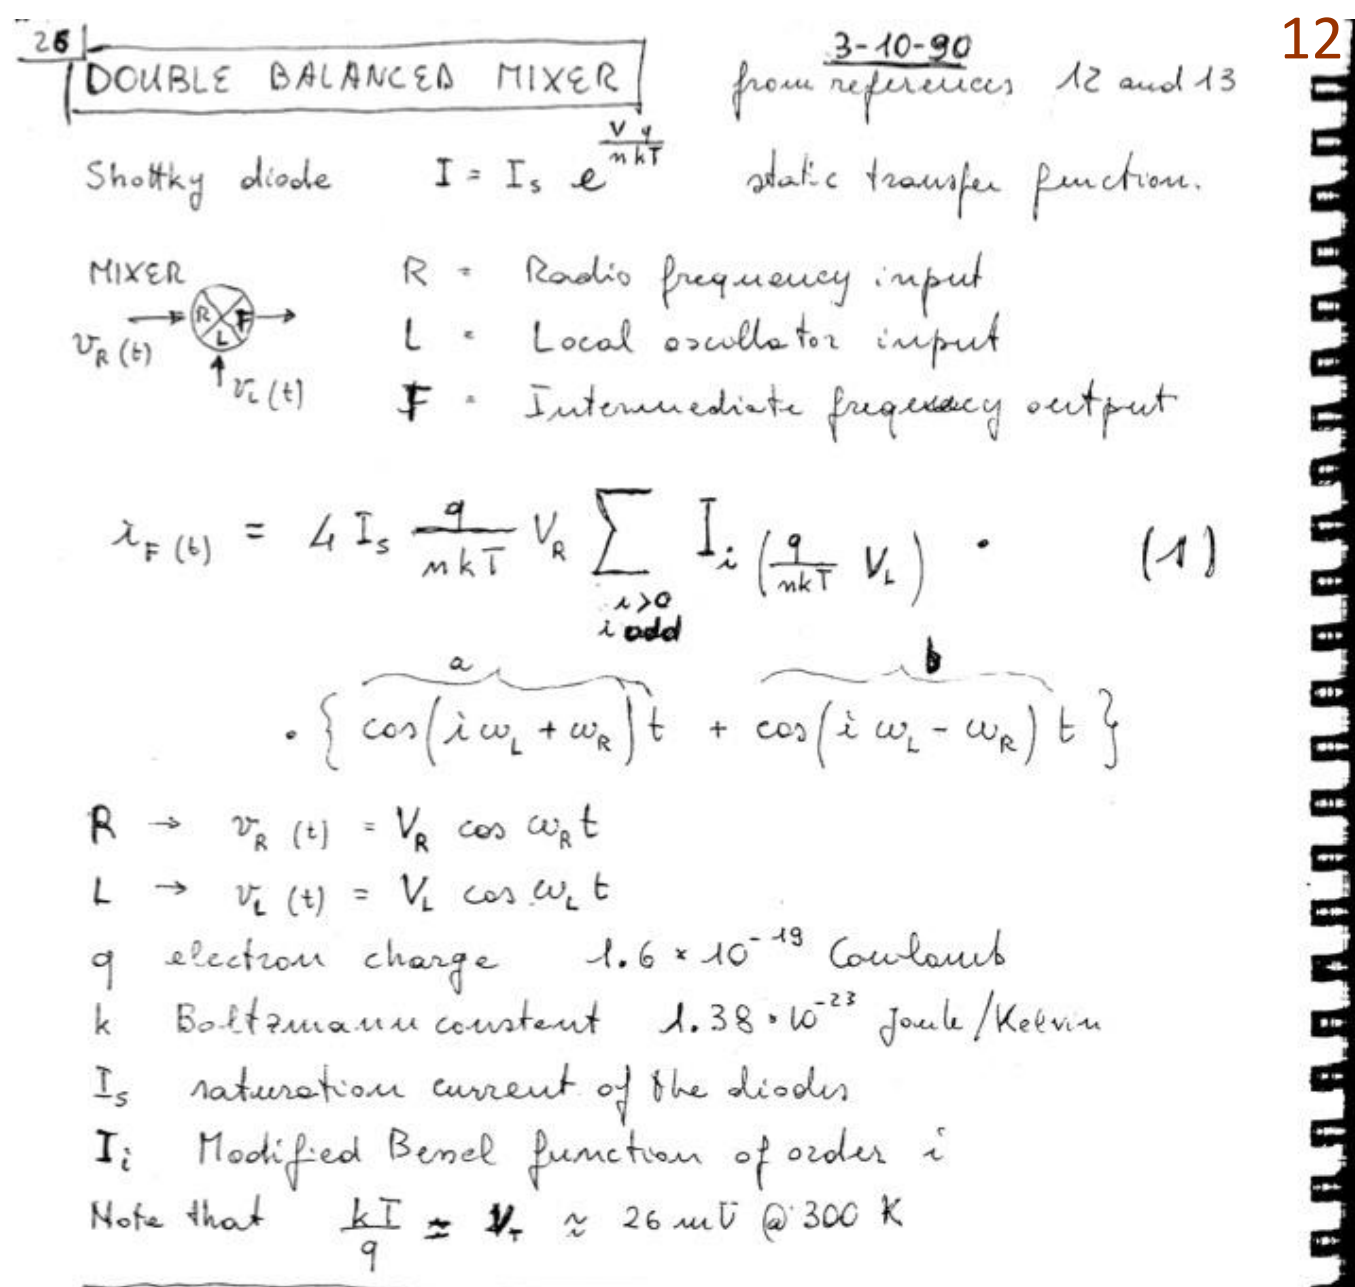 12
26
3-10-90
DOUBLE BALANCED MIXER from references 12 and 13
Shottky diode I = I_s e^{\frac{Vq}{nkT}} static transfer function.
MIXER R = Radio frequency input
R F L
v_R (t) L = Local oscillator input
v_L (t) F = Intermediate frequency output
i_F (t) = 4 I_s \frac{q}{nkT} V_R \sum_{i>0, i odd} I_i (\frac{q}{nkT} V_L) · (1)
a b
· { cos(i ω_L + ω_R) t + cos(i ω_L - ω_R) t }
R → v_R (t) = V_R cos ω_R t
L → v_L (t) = V_L cos ω_L t
q electron charge 1.6 × 10^{-19} Coulomb
k Boltzmann constant 1.38 · 10^{-23} Joule/Kelvin
I_s saturation current of the diodes
I_i Modified Bessel function of order i
Note that \frac{kT}{q} = V_T ≈ 26 mV @ 300 K